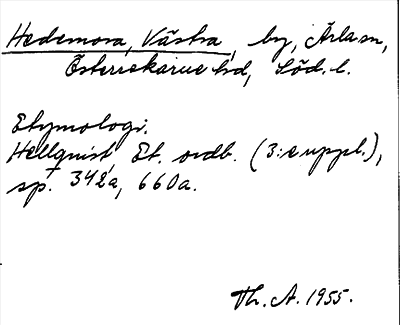 Hedemora, Västra, by, Ärla sn,
Österrekarne hd, Söd. l.
Etymologi.
Hellquist, Et. ordb. (3:e uppl.),
sp. 342a, 660a.
Th. A. 1955.